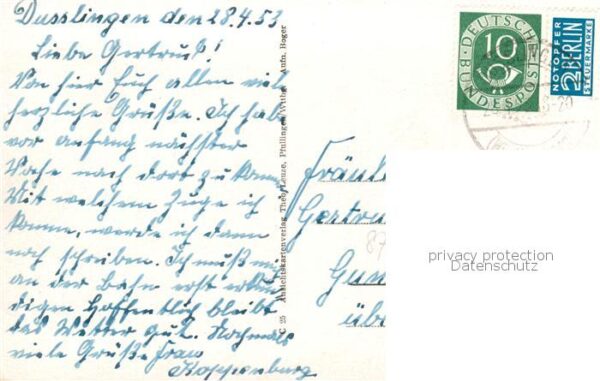 Dusslingen den 28.4.53
Liebe Gertrud!
Von hier Euch allen viele
herzliche Grüße. Ich habe
vor Anfang nächster
Woche nach dort zu komme
Mit welchem Zuge ich
komme, werde ich dann
noch schreiben. Ich muß mich
an der Bahn erst erkun
digen Hoffentlich bleibt
das Wetter gut. Nochmals
viele Grüße Frau
Koppenburg
C 25 Ansichtskartenverlag Theo Leuze, Pfullingen/Wttbg. Aufn. Boger
DEUTSCHE
BUNDESPOST
10
NOTOPFER
2 BERLIN
STEUERMARKE
Fräulein
Gertru
Gun
übe
87
privacy protection
Datenschutz